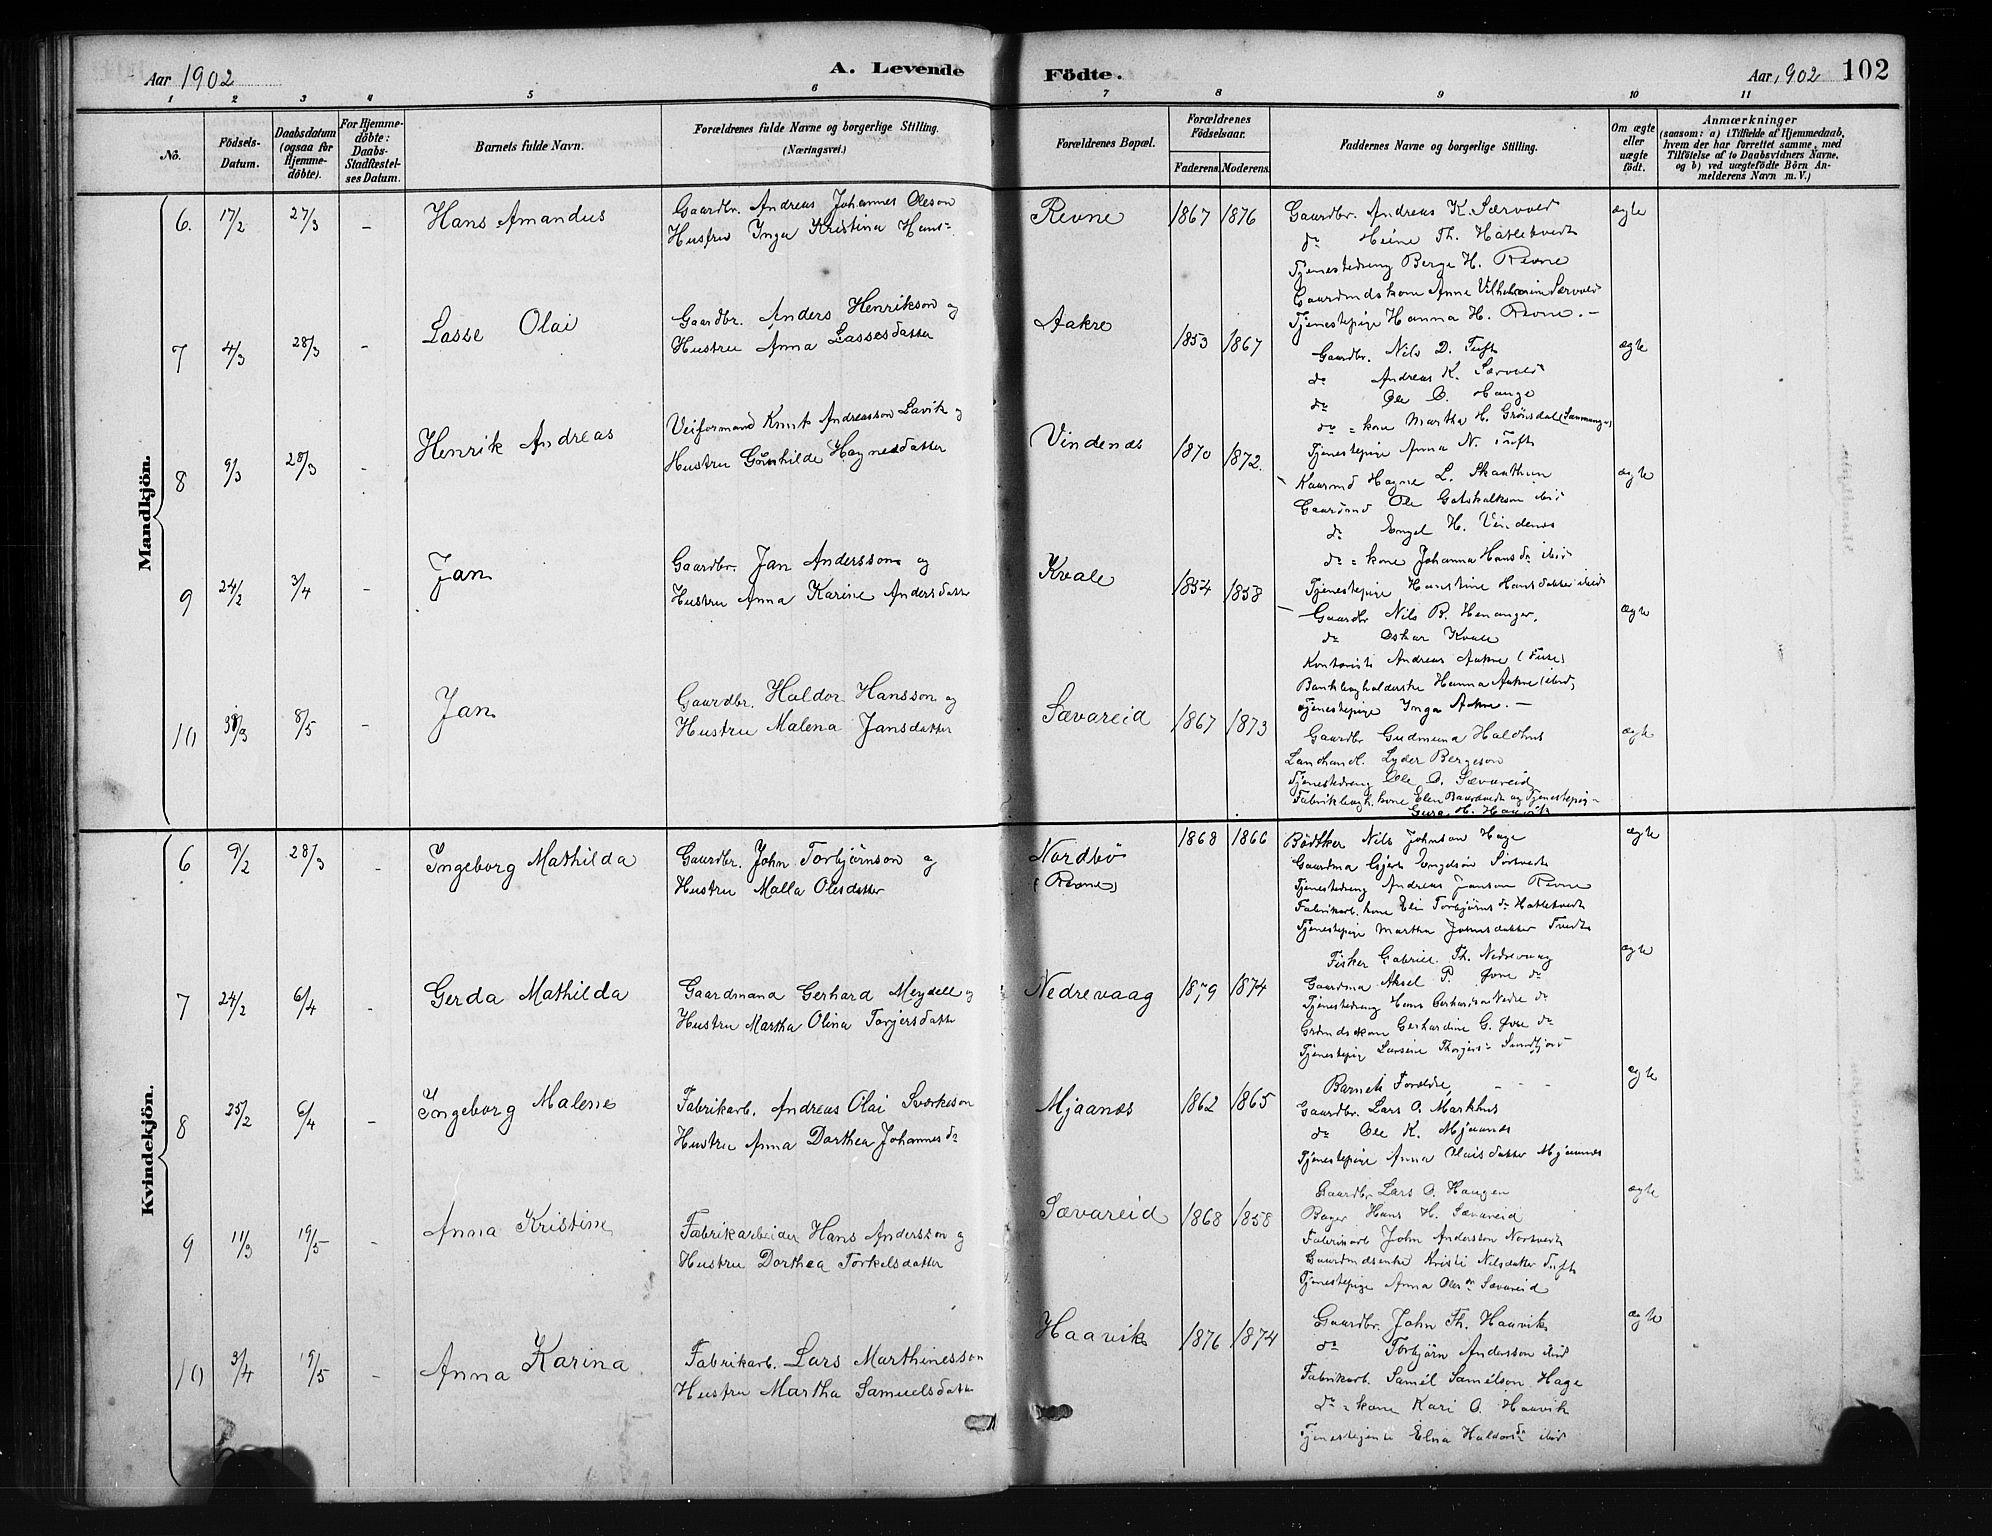 Aar 1902
A. Levende Födte.
Aar 1902
102
1 2 3 4 5 6 7 8 9 10 11
No.
Födsels-Datum.
Daabsdatum (ogsaa for Hjemme-döbte).
For Hjemme-döbte: Daabs-Stadfæstel-ses Datum.
Barnets fulde Navn.
Forældrenes fulde Navne og borgerlige Stilling. (Næringsvei.)
Forældrenes Bopæl.
Forældrenes Födselsaar.
Faderens. Moderens.
Faddernes Navne og borgerlige Stilling.
Om ægte eller uægte födt.
Anmærkninger
(saasom: a) i Tilfælde af Hjemmedaab, hvem der har forrettet samme, med Tilföielse af to Daabsvidners Navne, og b) ved uægtefödte Börn An-melderens Navn m. V.)
Mandkjön.
6. 17/2 27/3 - Hans Amandus
Gaardbr. Andreas Johannes Oleson
Hustru Inga Kristina Hans-
Revne 1867 1876
Gaardbr. Andreas K. Særvold
do Heine Th. Hatlekvedt
Tjenestedreng Berge H. Revne
Gaardmdskone Anne Vilhelmine Særvold
Tjenestepige Hanna H. Revne. -
ægte
7 4/3 28/3 - Lasse Olai
Gaardbr. Anders Henrikson og
Hustru Anna Lassesdatter
Aakre 1853 1867
Gaardbr. Nils D. Tuft
do Andreas K. Særvold
do Ole O. Hauge
do = kone Martha H. Grönsdal
Tjenestepige Anna N. Tuft
ægte
8 9/3 28/3 Henrik Andreas
Veiformand Knut Andreasson Lavik og
Hustru Gunhilde Hagnesdatter
Vindenes 1870 1872.
Kaarmd Hagne L. Skaathun
Gaardmd Ole Gotskalkson ibid
do Engel H. Vindenes
do = kone Johanna Hansdr ibid
Tjenestepige Hanstine Hansdatter ibid
ægte
9 24/2 3/4 - Jan
Gaardbr. Jan Andersson og
Hustru Anna Karine Andersdatter
Kvale 1854 1858
Gaardbr Nils B. Henanger,
do Oskar Kvale
Kontorist Andreas Aakre (Fuse)
Hanna Aakre (ibid)
Tjenestepige Inga Aakre. -
ægte
10 8/5 - Jan
Gaardbr. Haldor Hansson og
Hustru Malena Jansdatter
Sævareid 1867 1873
Gaardbr Gudmund Haldhus
Landhandl. Lyder Bergeson
Tjenestedreng Ole O. Sævareid
ægte
Kvindekjön.
6 9/2 28/3 - Ingeborg Mathilda
Gaardbr. John Torbjörnson og
Hustru Malla Olesdatter
Nordbö
(Revne)
1868 1866
Bödtker Nils Johnson Hage
Gaardma Gjert Engelsön
Tjenestedreng Andreas Janson Revne
Fabrikarb. kone Eli Torbjörnsdr Hatlekvedt
Tjenestepige Martha Johnsdatter Tvedt
ægte
7 24/2 6/4 - Gerda Mathilda
Gaardmand Gerhard Meydell og
Hustru Martha Olina Torjersdatter
Nedrevaag 1879 1874
Fisker Gabriel Th. Nedrevaag
Gaardma Aksel P. Övre do
Tjenestedreng Hans Gerhardson Nedre do
Grdmdskone Gerhardine G. Övre do
Tjenestepig Larsine
ægte
8 25/2 6/4 - Ingeborg Malene
Fabrikarb. Andreas Olai Sverkeson
Hustru Anna Dorthea Johannesdr
Mjaanes 1862 1865
Barnets Forældre,
Gaardbr. Lars O. Markhus
do Ole K. Mjaanes
Tjenestepige Anna Olaisdatter Mjaanes
ægte
9 11/3 19/5 - Anna Kristine
Fabrikarbeider Hans Andersson og
Hustru Dorthea Torkelsdatter
Sævareid 1868 1858
Gaardbr Lars O. Haugen
Bager Hans H. Sævareid
Fabrikarb John Andersson Nortvedt
Gaardmdsenke Kristi Nilsdatter Tuft
Tjenestepige Anna Olesdr Sævareid
ægte
10 3/4 19/5 - Anna Karina
Fabrikarb. Lars Marthinesson
Hustru Martha Samuelsdatter
Haavik 1876 1874
Gaardbr. John Th. Haavik
do Torbjörn Andersson ibid
Fabrikarb. Samél Samélson Hage
do = kone Kari O. Haavik
Tjenestejente Elna Haldorsdr ibid
ægte